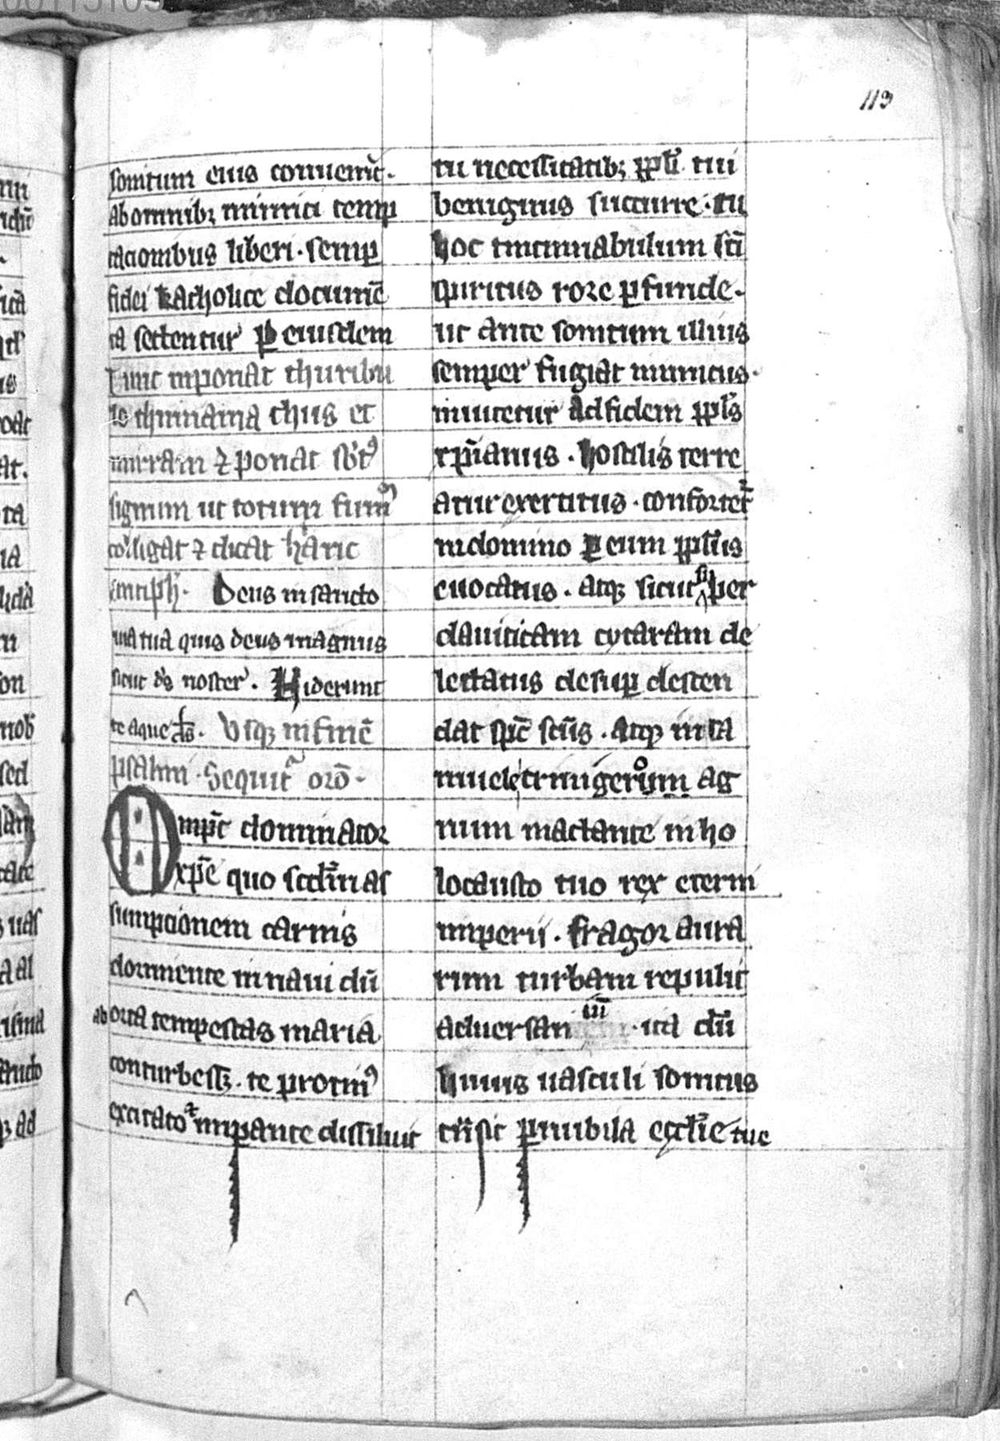 113
sonitum eius conuenit̄.
ab omnibꝫ inimici temp
tacionibus liberi. semꝑ
fidei katholice documē
ta sectentur ꝑ eiusdem
Tunc inponat thuribu
lo thimiama thus et
mirram ⁊ ponat sbt᷒
signum ut totum fumū
colligat ⁊ dicat hanc
Deus in sancto
uia tua quis deus magnus
sicut d̄s noster. Viderunt
te aque d̄s. Vsqꝫ in finē
psalmi. Sequit᷑ orō.
Omp̄c dominator
xp̄e quo sc̄dm̄ as
sumpcionem carnis
dormiente in naui dū
ab orta tempestas maria
conturbessꝫ. te protin᷒
excitato ⁊ imꝑante dissiluit
tu necessitatibꝫ ppl̄i tui
benignus succurre. tu
hoc tintinnabulum sc̄i
spiritus rore ꝑfunde.
ut ante sonitum illius
semper fugiat inimicus.
inuitetur ad fidem ppl̄s
xp̄ianus. hostilis terre
atur exercitus. confortet᷑
in domino ꝑ eum ppl̄us
euocatus. atqꝫ sicut si per
dauiticam cytaram de
lectatus desuꝑ descen
dat sp̄c sc̄us. atqꝫ ut sa
muele crinigerum ag
num mactante in ho
locausto tuo rex eterni
imperii. fragor aura
rum turbam repulit
aduersan . ita dū
huius uasculi sonitus
t̄nsit ꝑ nubila eccl̄ie tue